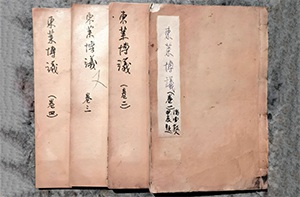 東莱博議（卷一
東莱博議（卷二）
東莱博議
卷三
東莱博議
（卷四）